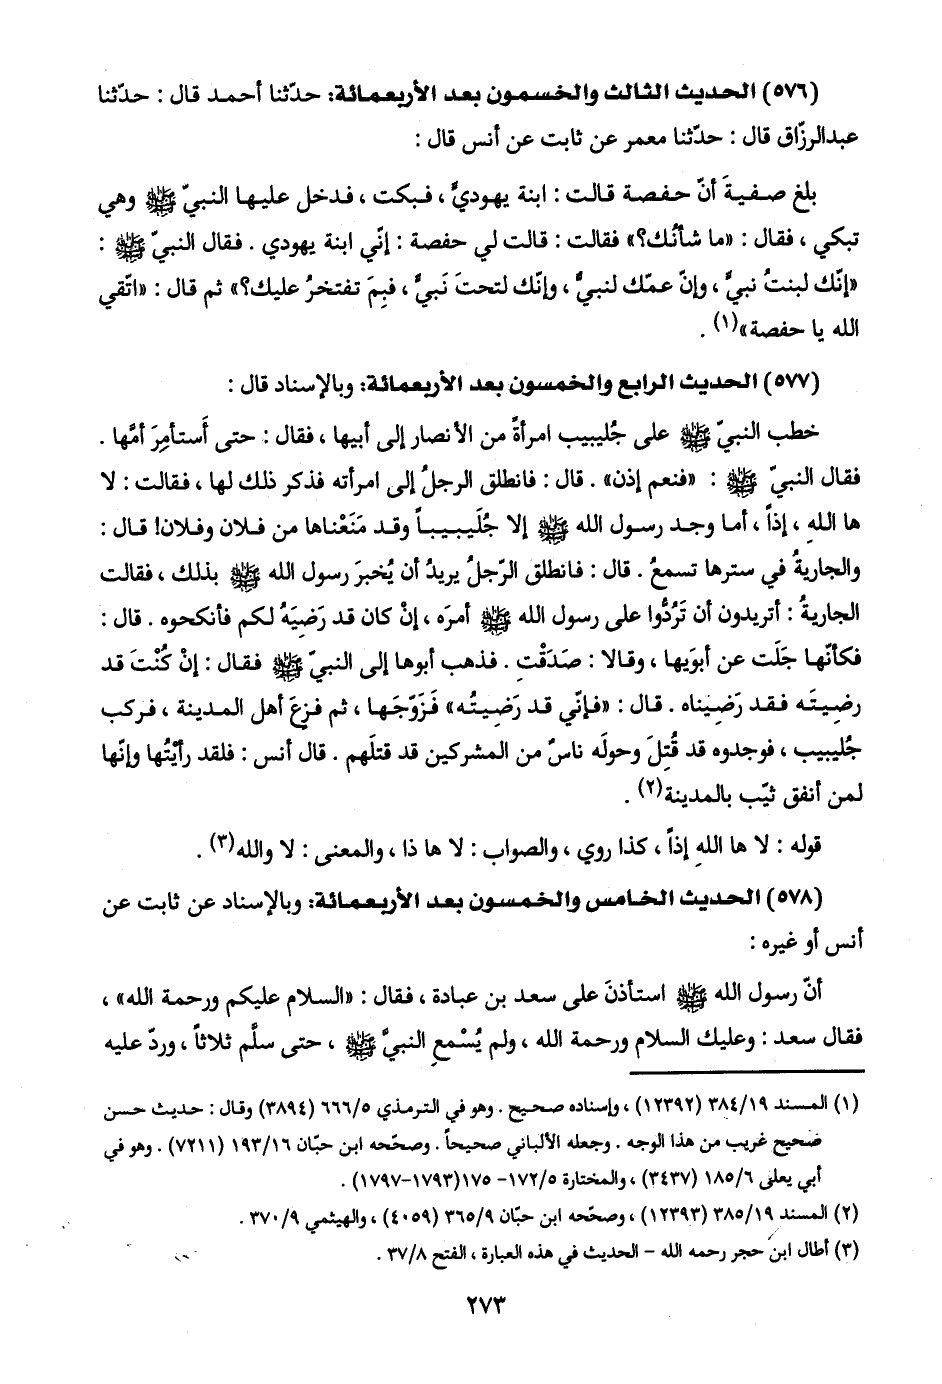 (٥٧٦) الحديث الثالث والخمسون بعد الأربعمائة: حدّثنا أحمد قال : حدّثنا
عبدالرزّاق قال : حدّثنا معمر عن ثابت عن أنس قال :
بلغ صفيةَ أنّ حفصة قالت : ابنة يهوديٍّ ، فبكت ، فدخل عليها النبيّ ﷺ وهي
تبكي ، فقال : «ما شأنُك؟» فقالت : قالت لي حفصة : إنّي ابنة يهودي . فقال النبيّ ﷺ :
«إنّك لبنتُ نبيٍّ ، وإنّ عمّك لنبيٌّ ، وإنّك لتحتَ نَبيٍّ ، فبِمَ تفتخرُ عليك؟» ثم قال : «اتّقي
الله يا حفصة»(١) .
(٥٧٧) الحديث الرابع والخمسون بعد الأربعمائة: وبالإسناد قال :
خطب النبيّ ﷺ على جُليبيب امرأةً من الأنصار إلى أبيها ، فقال : حتى أَستأمِرَ أمَّها .
فقال النبيّ ﷺ : «فنعم إذن» . قال : فانطلق الرجلُ إلى امرأته فذكر ذلك لها ، فقالت : لا
ها اللهِ ، إذاً ، أما وجد رسول الله ﷺ إلا جُلَيبيباً وقد مَنَعْناها من فلان وفلان! قال :
والجاريةُ في سترها تسمعُ . قال : فانطلق الرّجلُ يريدُ أن يُخبرَ رسول الله ﷺ بذلك ، فقالت
الجاريةُ : أتريدون أن تَرُدُّوا على رسول الله ﷺ أمرَه ، إنْ كان قد رَضِيَهُ لكم فأنكحوه . قال :
فكأنّها جَلَت عن أبوَيها ، وقالا : صَدَقْتِ . فذهب أبوها إلى النبيّ ﷺ فقال : إنْ كُنْتَ قد
رضِيتَه فقد رَضِيناه . قال : «فإنّي قد رَضِيتُه» فَزَوّجَها ، ثم فزِعَ أهل المدينة ، فركب
جُليبيب ، فوجدوه قد قُتِلَ وحولَه ناسٌ من المشركين قد قتلَهم . قال أنس : فلقد رأيْتُها وإنّها
لمن أنفق ثيّب بالمدينة(٢) .
قوله : لا ها اللهِ إذاً ، كذا روي ، والصواب : لا ها ذا ، والمعنى : لا والله(٣) .
(٥٧٨) الحديث الخامس والخمسون بعد الأربعمائة: وبالإسناد عن ثابت عن
أنس أو غيره :
أنّ رسول الله ﷺ استأذنَ على سعد بن عبادة ، فقال : «السلام عليكم ورحمة الله» ،
فقال سعد : وعليك السلام ورحمة الله ، ولم يُسْمعِ النبيَّ ﷺ ، حتى سلَّم ثلاثاً ، وردّ عليه
(١) المسند ٣٨٤/١٩ (١٢٣٩٢) ، وإسناده صحيح . وهو في الترمذي ٦٦٦/٥ (٣٨٩٤) وقال : حديث حسن
صحيح غريب من هذا الوجه . وجعله الألباني صحيحاً . وصحّحه ابن حبّان ١٩٣/١٦ (٧٢١١) . وهو في
أبي يعلى ١٨٥/٦ (٣٤٣٧) ، والمختارة ١٧٢/٥- ١٧٥(١٧٩٣-١٧٩٧) .
(٢) المسند ٣٨٥/١٩ (١٢٣٩٣) ، وصحّحه ابن حبّان ٣٦٥/٩ (٤٠٥٩) ، والهيثمي ٣٧٠/٩ .
(٣) أطال ابن حجر رحمه الله - الحديث في هذه العبارة ، الفتح ٣٧/٨ .
٢٧٣